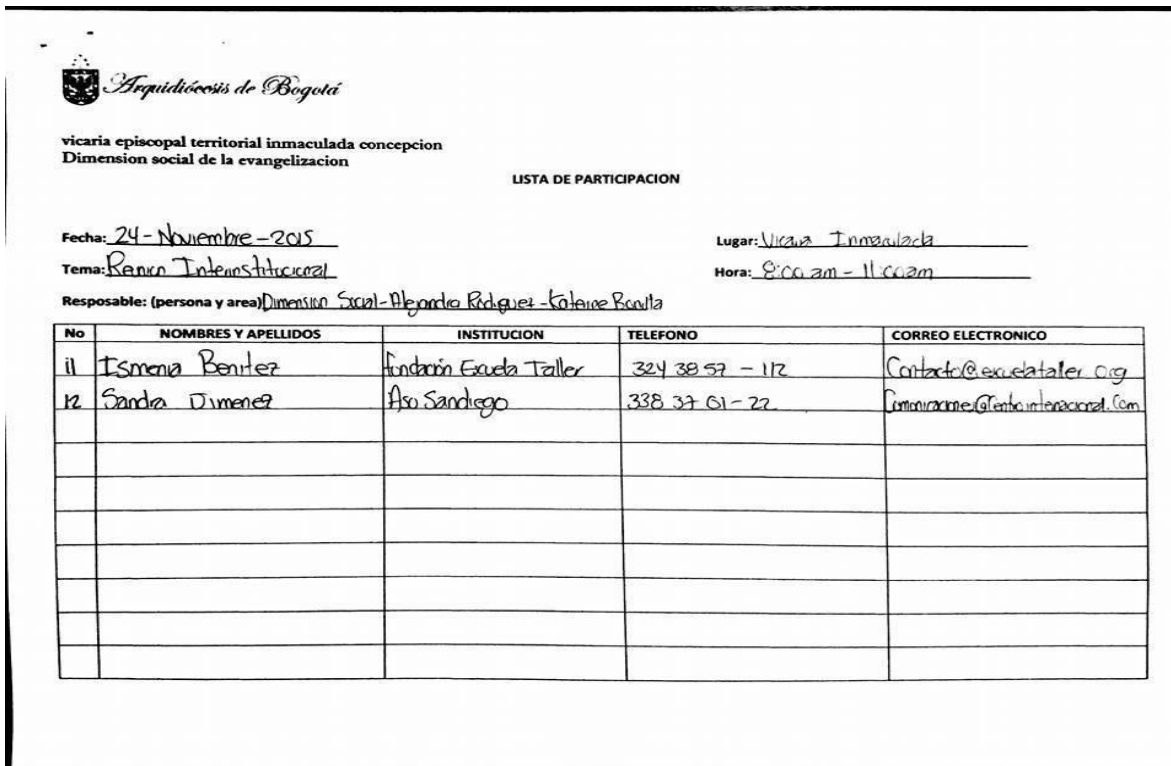 Arquidiócesis de Bogotá
vicaria episcopal territorial inmaculada concepcion
Dimension social de la evangelizacion
LISTA DE PARTICIPACION
Fecha: 24 - Noviembre - 2015 Lugar: Vicaria Inmaculada
Tema: Interinstitucional Hora: 8:00 am - 11:00am
Resposable: (persona y area) Dimension Social - Alejandra Rodriguez - Katerine Bonilla
No NOMBRES Y APELLIDOS INSTITUCION TELEFONO CORREO ELECTRONICO
11 Ismena Benitez Fundación Escuela Taller 324 38 57 - 112 Contacto@escuelataller.org
12 Sandra Jimenez Aso Sandiego 338 37 61 - 22